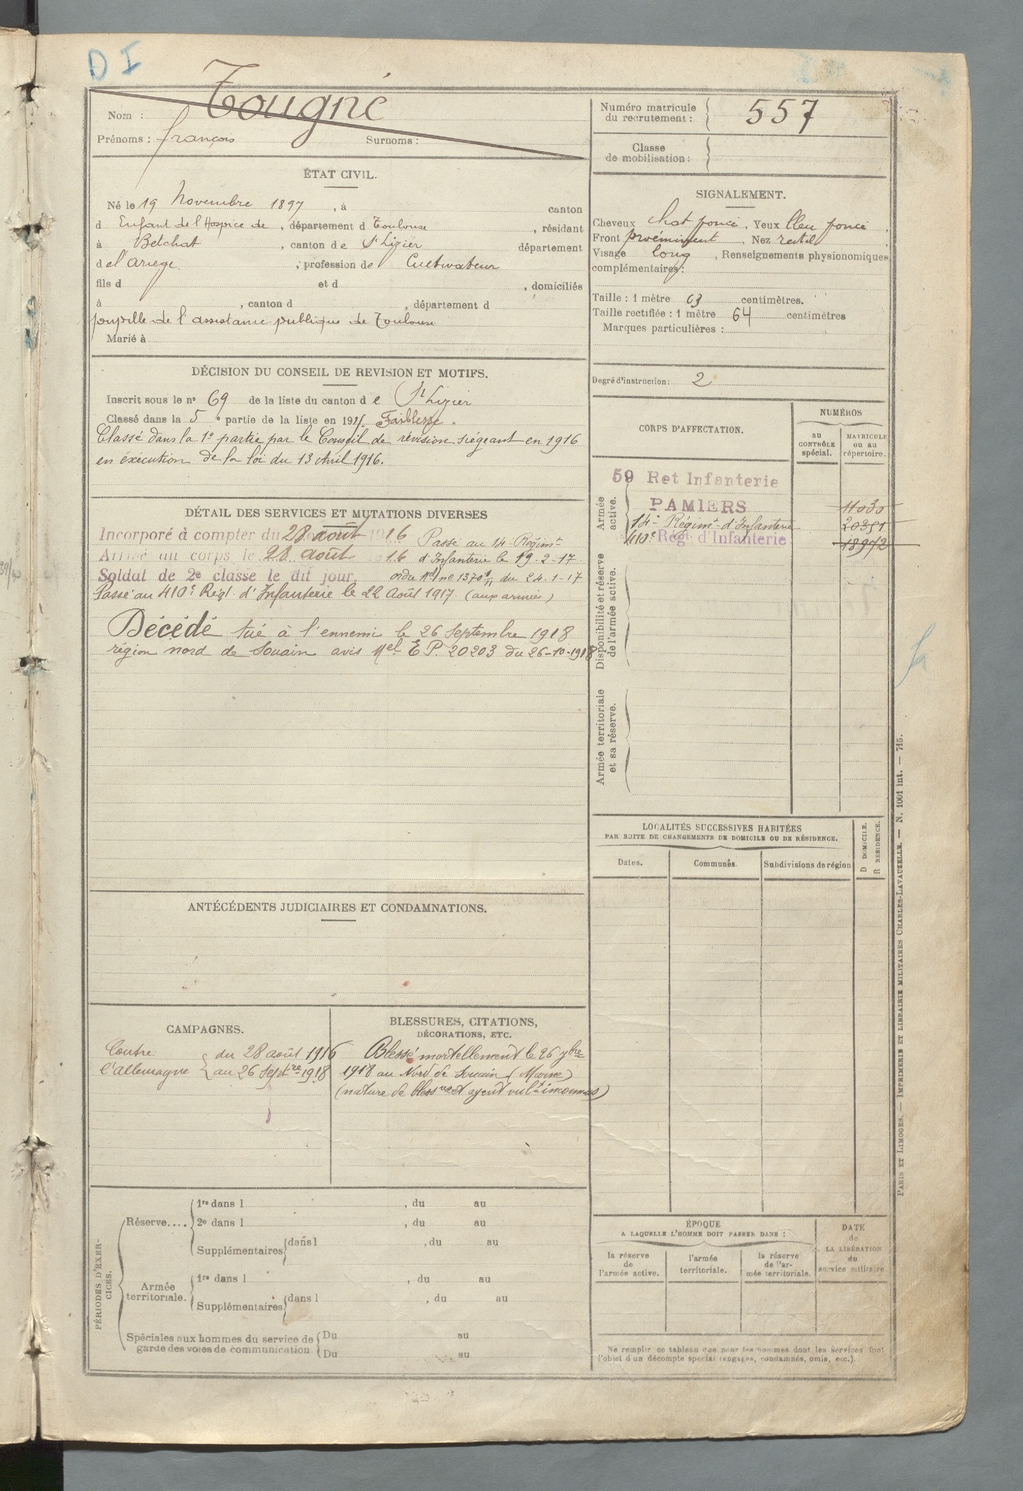 D I
Nom : Tougné
Prénoms : françois Surnoms :
Numéro matricule du recrutement : 557
Classe de mobilisation :
ÉTAT CIVIL.
Né le 19 Novembre 1897, à canton
d Enfant de l'Hospice de, département d Toulouse, résidant
à Betchat, canton de St Lizier département
de l'Ariège, profession de Cultivateur
fils d et d, domiciliés
à, canton d, département d
pupille de l'assistance publique de Toulouse
Marié à
SIGNALEMENT.
Cheveux chat foncé, Yeux bleu foncé,
Front proéminent, Nez rectil
Visage long, Renseignements physionomiques
complémentaires :
Taille : 1 mètre 63 centimètres.
Taille rectifiée : 1 mètre 64 centimètres
Marques particulières :
Degré d'instruction : 2
DÉCISION DU CONSEIL DE REVISION ET MOTIFS.
Inscrit sous le nº 69 de la liste du canton de St Lizier
Classé dans la 5e partie de la liste en 191 Faiblesse.
Classé dans la 1e partie par le Conseil de révision siégeant en 1916
en exécution de la loi du 13 Avril 1916.
DÉTAIL DES SERVICES ET MUTATIONS DIVERSES
Incorporé à compter du 28 août 1916 Passé au 14e Régimt
Arrivé au corps le 28 août 16 d'Infanterie le 19-2-17
Soldat de 2e classe le dit jour. du 24-1-17
Passé au 410e Régt d'Infanterie le 22 Août 1917 (aux armées)
Décédé tué à l'ennemi le 26 Septembre 1918
région nord de Souain avis Mel E P. 20203 du 26-10-1918
CORPS D'AFFECTATION.
NUMÉROS
au CONTRÔLE spécial.
MATRICULE ou au répertoire.
Armée active.
59 Ret Infanterie
PAMIERS 11030
14e Régimt d'Infanterie 20351
410e Régt d'Infanterie 18972
Disponibilité et réserve de l'armée active.
Armée territoriale et sa réserve.
LOCALITÉS SUCCESSIVES HABITÉES
PAR SUITE DE CHANGEMENTS DE DOMICILE OU DE RÉSIDENCE.
Dates. Communes. Subdivisions de région
D DOMICILE.
R RÉSIDENCE.
ANTÉCÉDENTS JUDICIAIRES ET CONDAMNATIONS.
CAMPAGNES.
Contre l'allemagne
du 28 août 1916
au 26 Septre 1918
BLESSURES, CITATIONS,
DÉCORATIONS, ETC.
Blessé mortellement le 26 7bre
1918 au Nord de Souain (Marne)
PÉRIODES D'EXERCICES.
Réserve....
1re dans l, du au
2e dans l, du au
Supplémentaires dans l, du au
Armée territoriale.
1re dans l, du au
Supplémentaires dans l, du au
Spéciales aux hommes du service de garde des voies de communication
Du au
Du au
ÉPOQUE
A LAQUELLE L'HOMME DOIT PASSER DANS :
la réserve de l'armée active.
l'armée territoriale.
la réserve de l'armée territoriale.
DATE de LA LIBÉRATION du service militaire
Ne remplir ce tableau que pour les hommes dont les services font
l'objet d'un décompte spécial (engagés, condamnés, omis, etc.).
PARIS ET LIMOGES. — IMPRIMERIE ET LIBRAIRIE MILITAIRES CHARLES-LAVAUZELLE. — N. 1001 int. — 715.